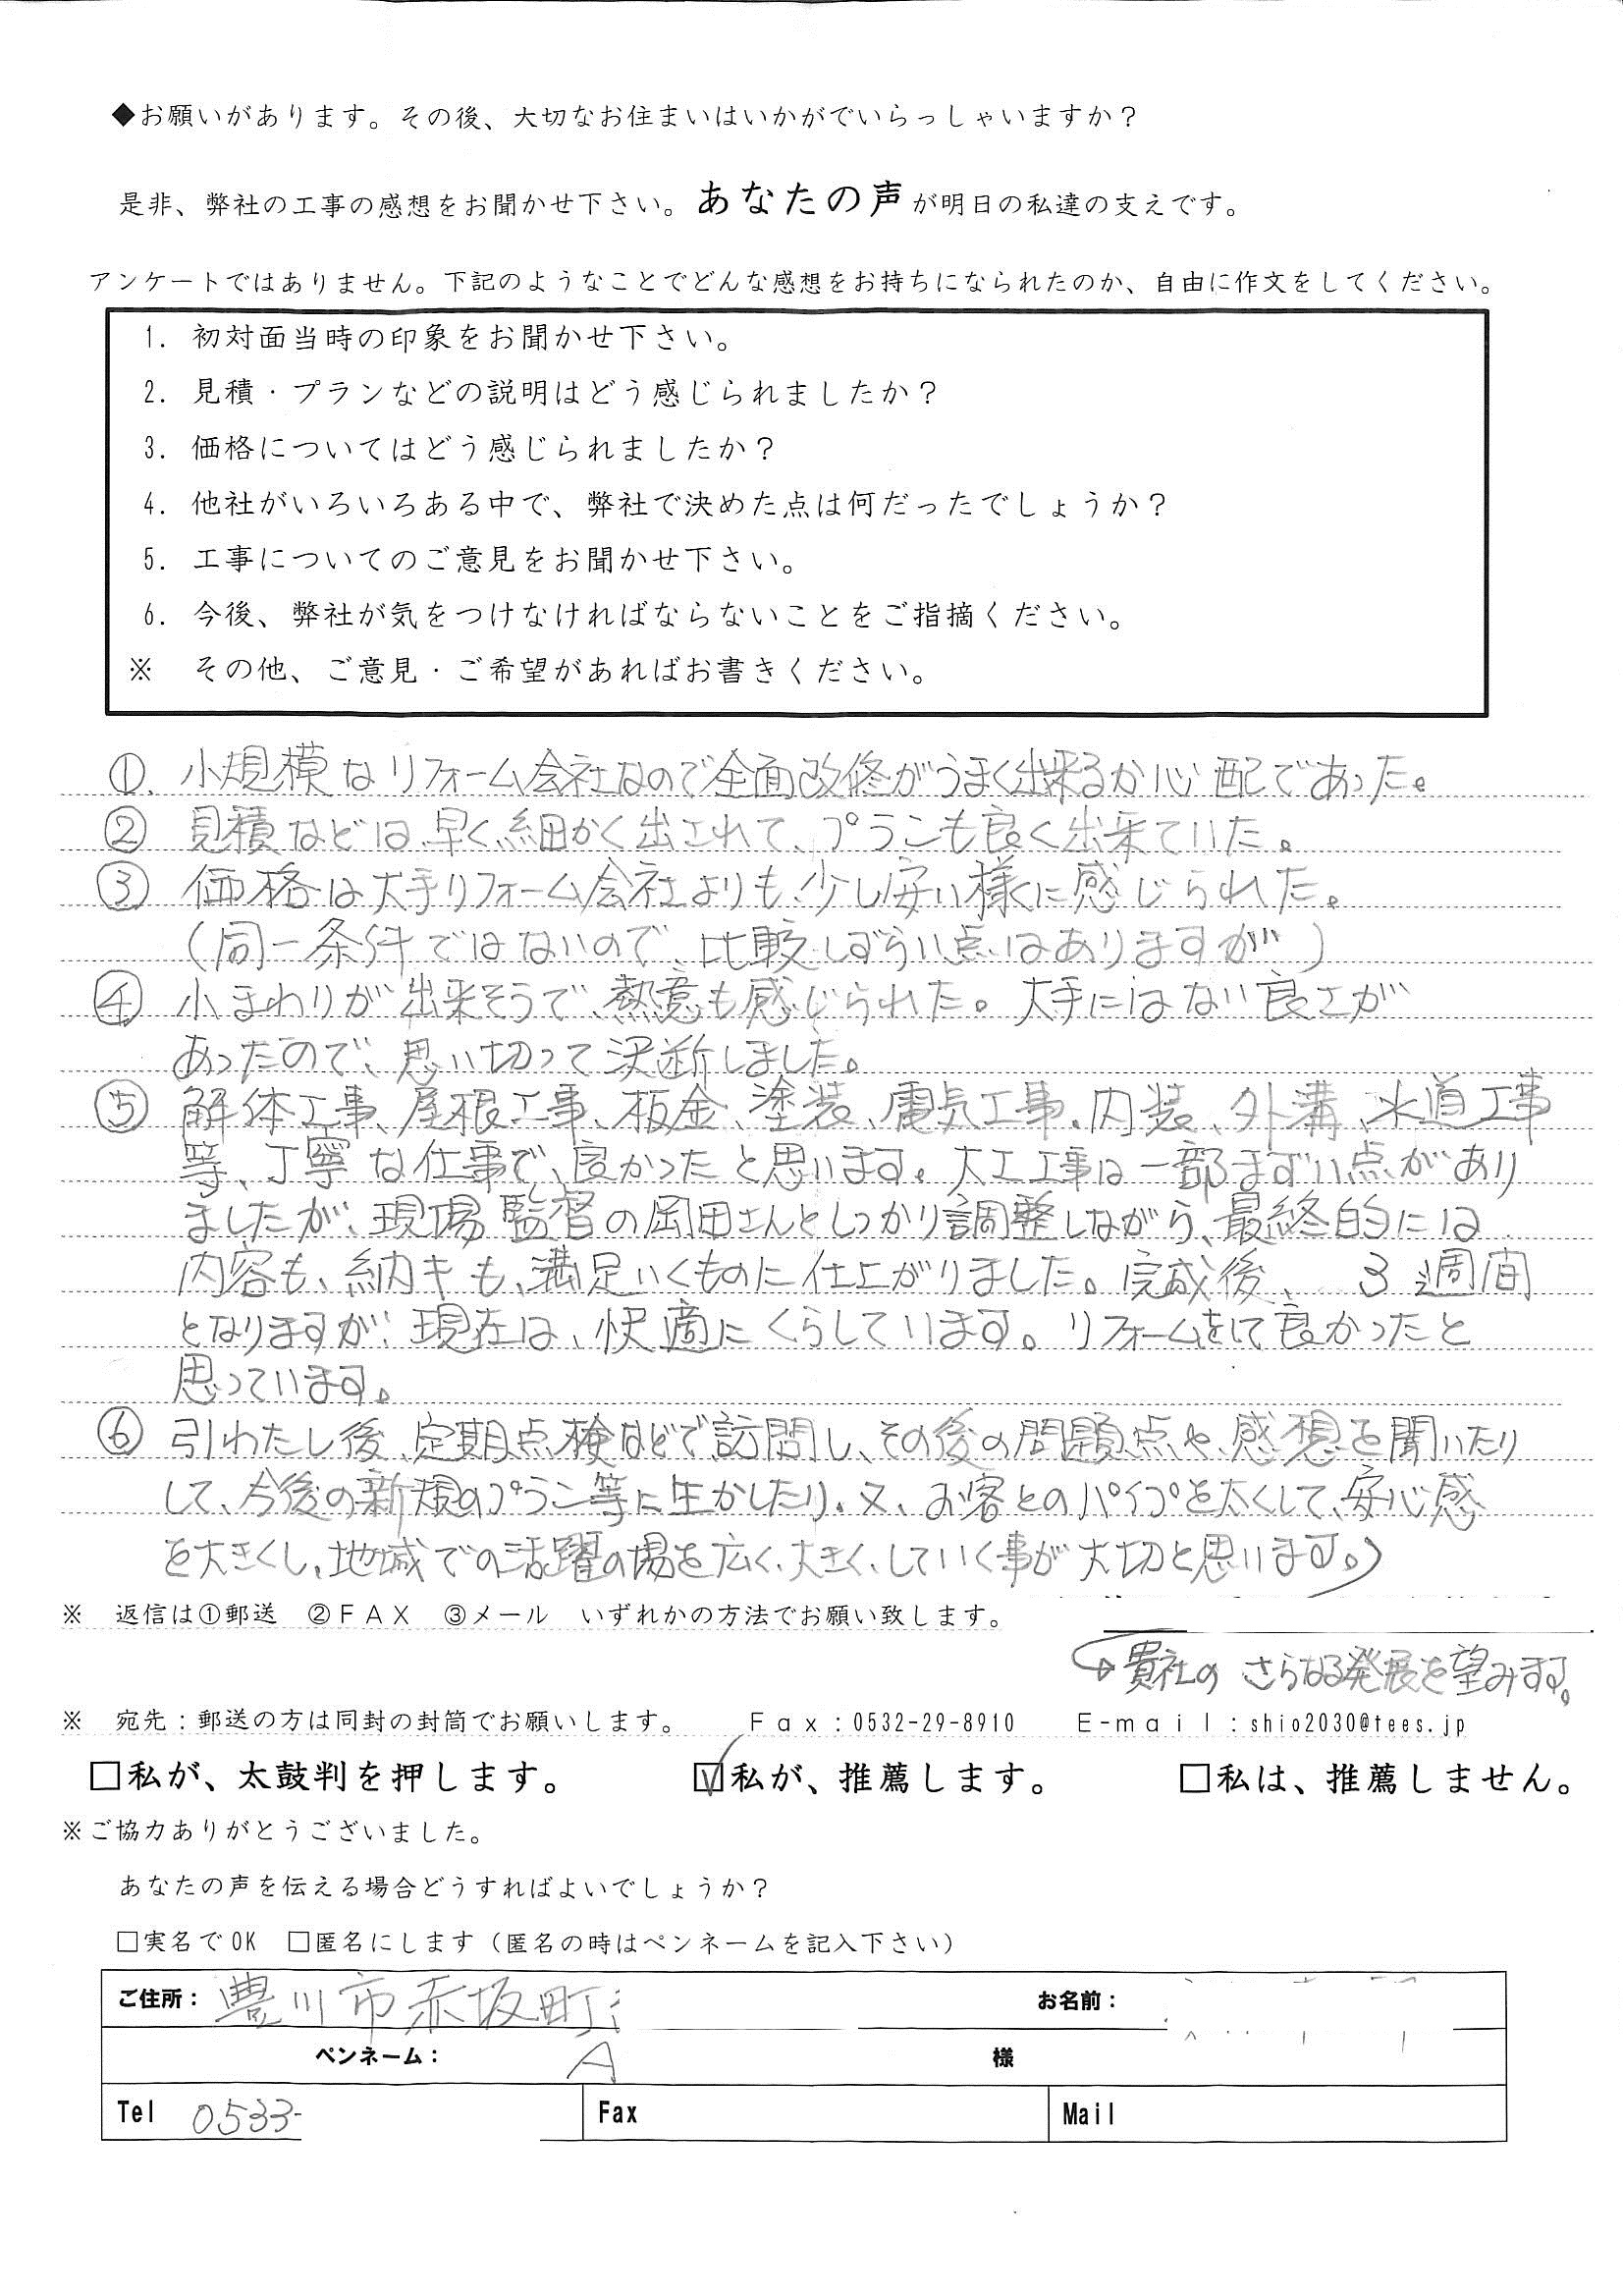 ◆お願いがあります。その後、大切なお住まいはいかがでいらっしゃいますか？
是非、弊社の工事の感想をお聞かせ下さい。あなたの声が明日の私達の支えです。
アンケートではありません。下記のようなことでどんな感想をお持ちになられたのか、自由に作文をしてください。
1. 初対面当時の印象をお聞かせ下さい。
2. 見積・プランなどの説明はどう感じられましたか？
3. 価格についてはどう感じられましたか？
4. 他社がいろいろある中で、弊社で決めた点は何だったでしょうか？
5. 工事についてのご意見をお聞かせ下さい。
6. 今後、弊社が気をつけなければならないことをご指摘ください。
※ その他、ご意見・ご希望があればお書きください。
①. 小規模なリフォーム会社なので全面改修がうまく出来るか心配であった。
② 見積などは、早く、細かく出されて、プランも良く出来ていた。
③ 価格は大手リフォーム会社よりも、少し安い様に感じられた。
(同一条件ではないので、比較しずらい点はありますが)
④ 小まわりが出来そうで、熱意も感じられた。大手にはない良さが
あったので、思い切って決断しました。
⑤ 解体工事、屋根工事、板金、塗装、電気工事、内装、外溝、水道工事
等、丁寧な仕事で、良かったと思います。大工工事は一部まずい点があり
ましたが、現場監督の岡田さんとしっかり調整しながら、最終的には
内容も、納キも、満足いくものに仕上がりました。完成後、3週間
となりますが、現在は、快適にくらしています。リフォームをして良かったと
思っています。
⑥ 引わたし後、定期点検などで訪問し、その後の問題点や、感想を聞いたり
して、今後の新規のプラン等に生かしたり、又、お客とのパイプを太くして、安心感
を大きくし、地域での活躍の場を広く、大きく、していく事が大切と思います。
※ 返信は①郵送 ②ＦＡＸ ③メール いずれかの方法でお願い致します。
→貴社の さらなる発展を望みます。
※ 宛先：郵送の方は同封の封筒でお願いします。 Ｆａｘ：0532-29-8910 Ｅ-ｍａｉｌ：shio2030@tees.jp
□私が、太鼓判を押します。 ☑私が、推薦します。 □私は、推薦しません。
※ご協力ありがとうございました。
あなたの声を伝える場合どうすればよいでしょうか？
□実名でOK □匿名にします（匿名の時はペンネームを記入下さい）
ご住所： 豊川市赤坂町 お名前：
ペンネーム： A 様
Tel 0533- Fax Mail